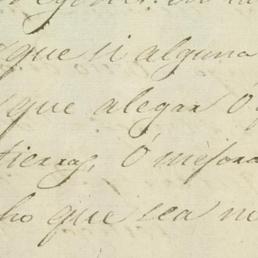 que si alguna
que alegar ó
tierras, ó mejora
ho que sea